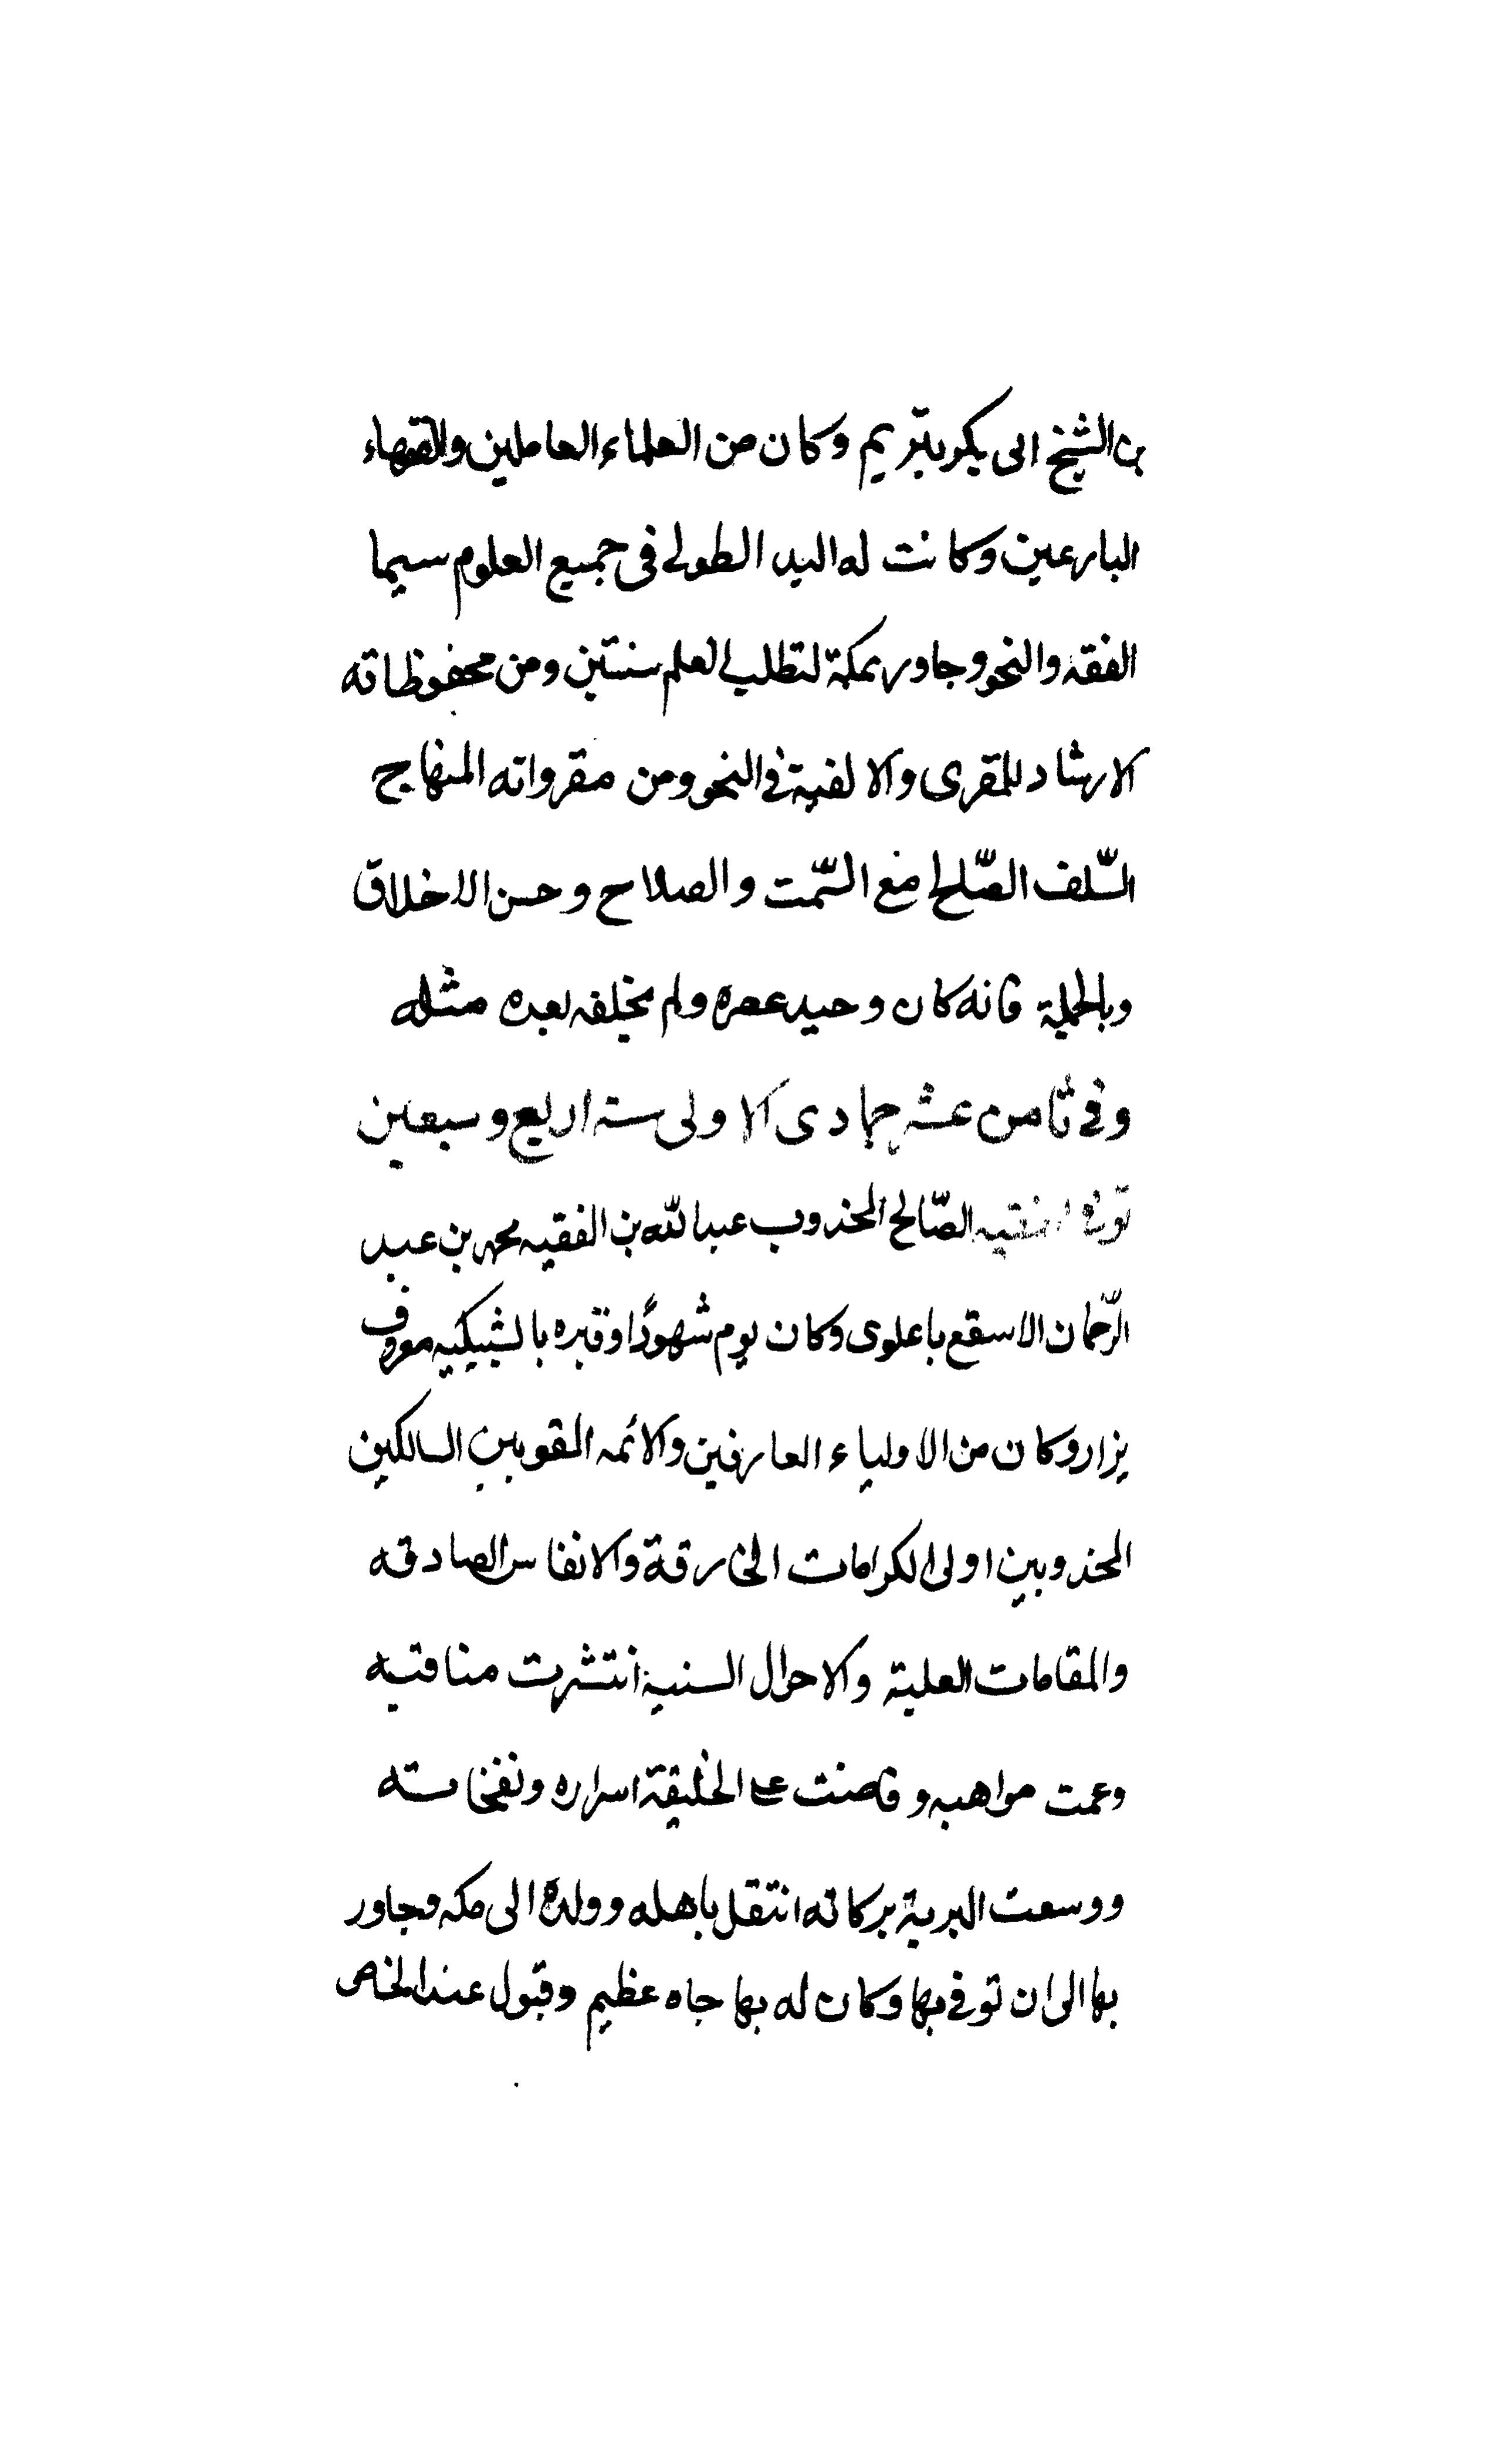 بن الشيخ ابى بكر بتريم وكان من العلماء العاملين والفقهاء
البارعين وكانت له اليد الطولى فى جميع العلوم سيما
الفقه والنحو وجاور بمكة لتطلب العلم سنتين ومن محفوظاته
الارشاد للمقرى والالفية فى النحو ومن مقرواته المنهاج
السّلف الصّالح مع السّمت والصلاح وحسن الاخلاق
وبالجملة فانه كان وحيد عصره ولم يخلفه بعده مثله
وفى ثامن عشر جمادى الاولى سنة اربع وسبعين
توفى الفقيه الصّالح المجذوب عبد اللّه بن الفقيه محمد بن عبد
الرّحمان الاسقع باعلوى وكان يوم شهودًا وقبره بالشبيكيه معروف
يزار وكان من الاولياء العارفين والائمه المقربين السالكين
المجذوبين اولى الكرامات الخارقة والانفاس الصادقه
والمقامات العلية والاحوال السنية انتشرت مناقبه
وعمت مواهبه وفاضت على الخليقة اسراره ونفحاته
ووسعت البرية بركاته انتقل باهله وولده الى مكه وجاور
بها الى ان توفى بها وكان له بها جاه عظيم وقبول عند الخاص